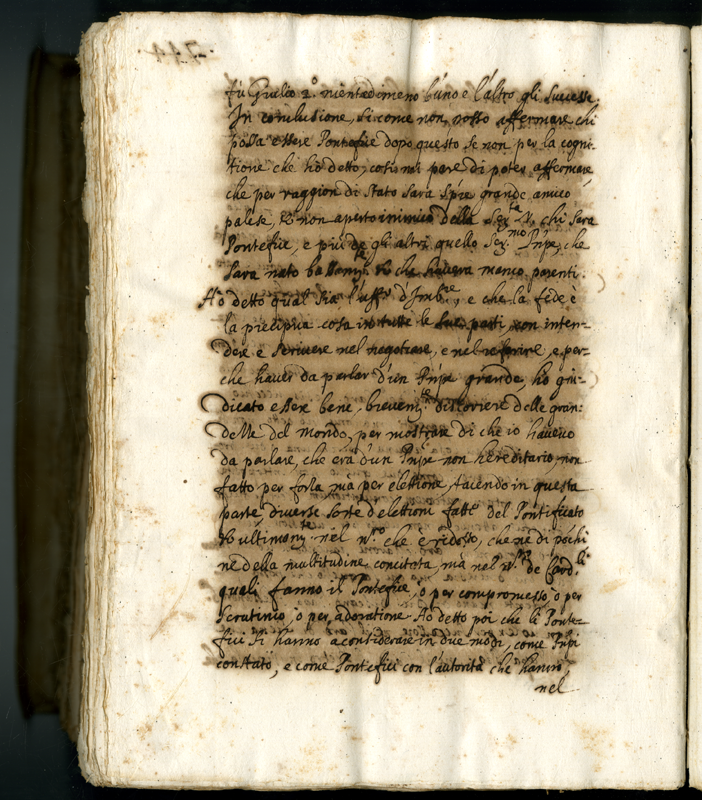 fù Giulio 2.º nientedimeno l'uno e l'altro gli successe.
In conclusione, si come non posso affermare chi
possa essere Pontefice dopo questo se non per la cogni-
tione che hò detto, cosi mi pare di poter affermare
che per raggion di stato sarà sp're grande amico
palese, & non aperto inimico della Ser.tà V. chi sarà
Pontefice, e più de gli altri quello Ser.mo Prn'pe, che
sarà nato bassam.te & che haverà manco parenti.
Hò detto qual sia l'uff.o d'Imb.re, e che la fede è
la precipua cosa in tutte le sue parti, con inten-
dere e scrivere nel negotiare, e nel referire, e per-
che haver da parlar d'un Prn'pe grande, hò giu-
dicato essere bene, brevem.te discorrere delle gran-
desse del mondo, per mostrare di che io havevo
da parlare, che era d'un Prn'pe non hereditario, non
fatto per forza, mà per elettione, facendo in questa
parte diverse sorte d'elettioni fatte del Pontificato
& ultimam.te nel n.o che è ridotto, che nè di pochi
ne della multitudine concitata, mà nel n.o de Card.li
quali fanno il Pontefice, ò per compromesso, ò per
scrutinio, ò per adoratione. Hò detto poi che li Ponte-
fici si hanno a considerare in due modi, come Prn'pi
con stato, e come Pontefici con l'autorità che hanno
nel